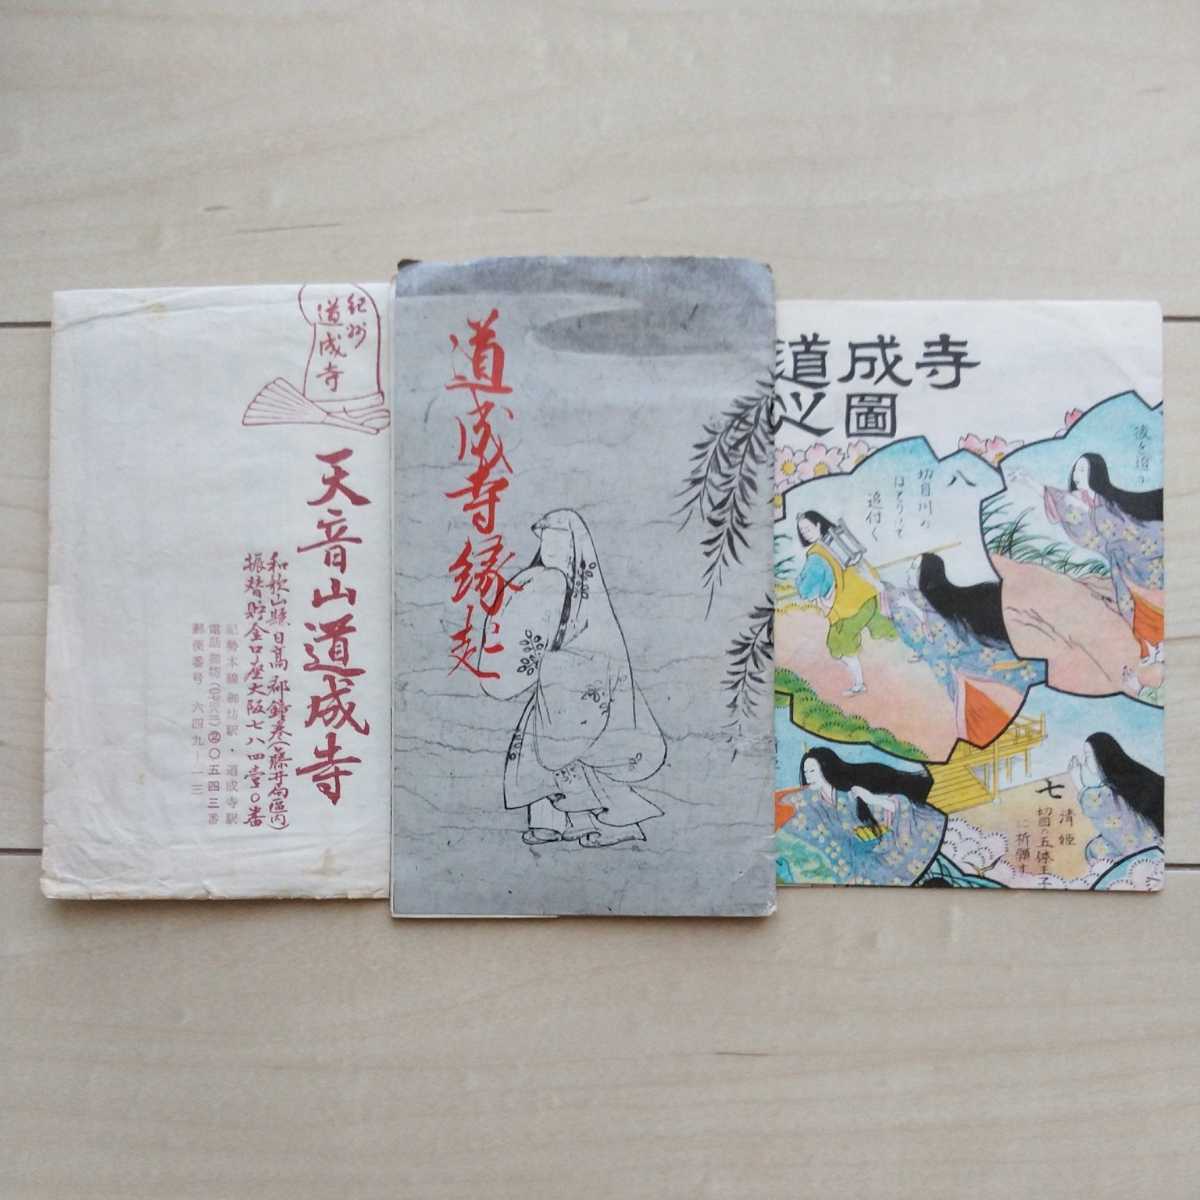 紀州
道成寺
天音山道成寺
和歌山縣日高郡鐘巻(藤井局區内)
振替貯金口座大阪七八四壹〇番
紀勢本線御坊駅・道成寺駅
郵便番号 六四九-一三
道成寺縁起
道成寺
図
八
切目川の
ほとりにて
追付く
後を追
七
清姫
切目の五体王子
に祈願す